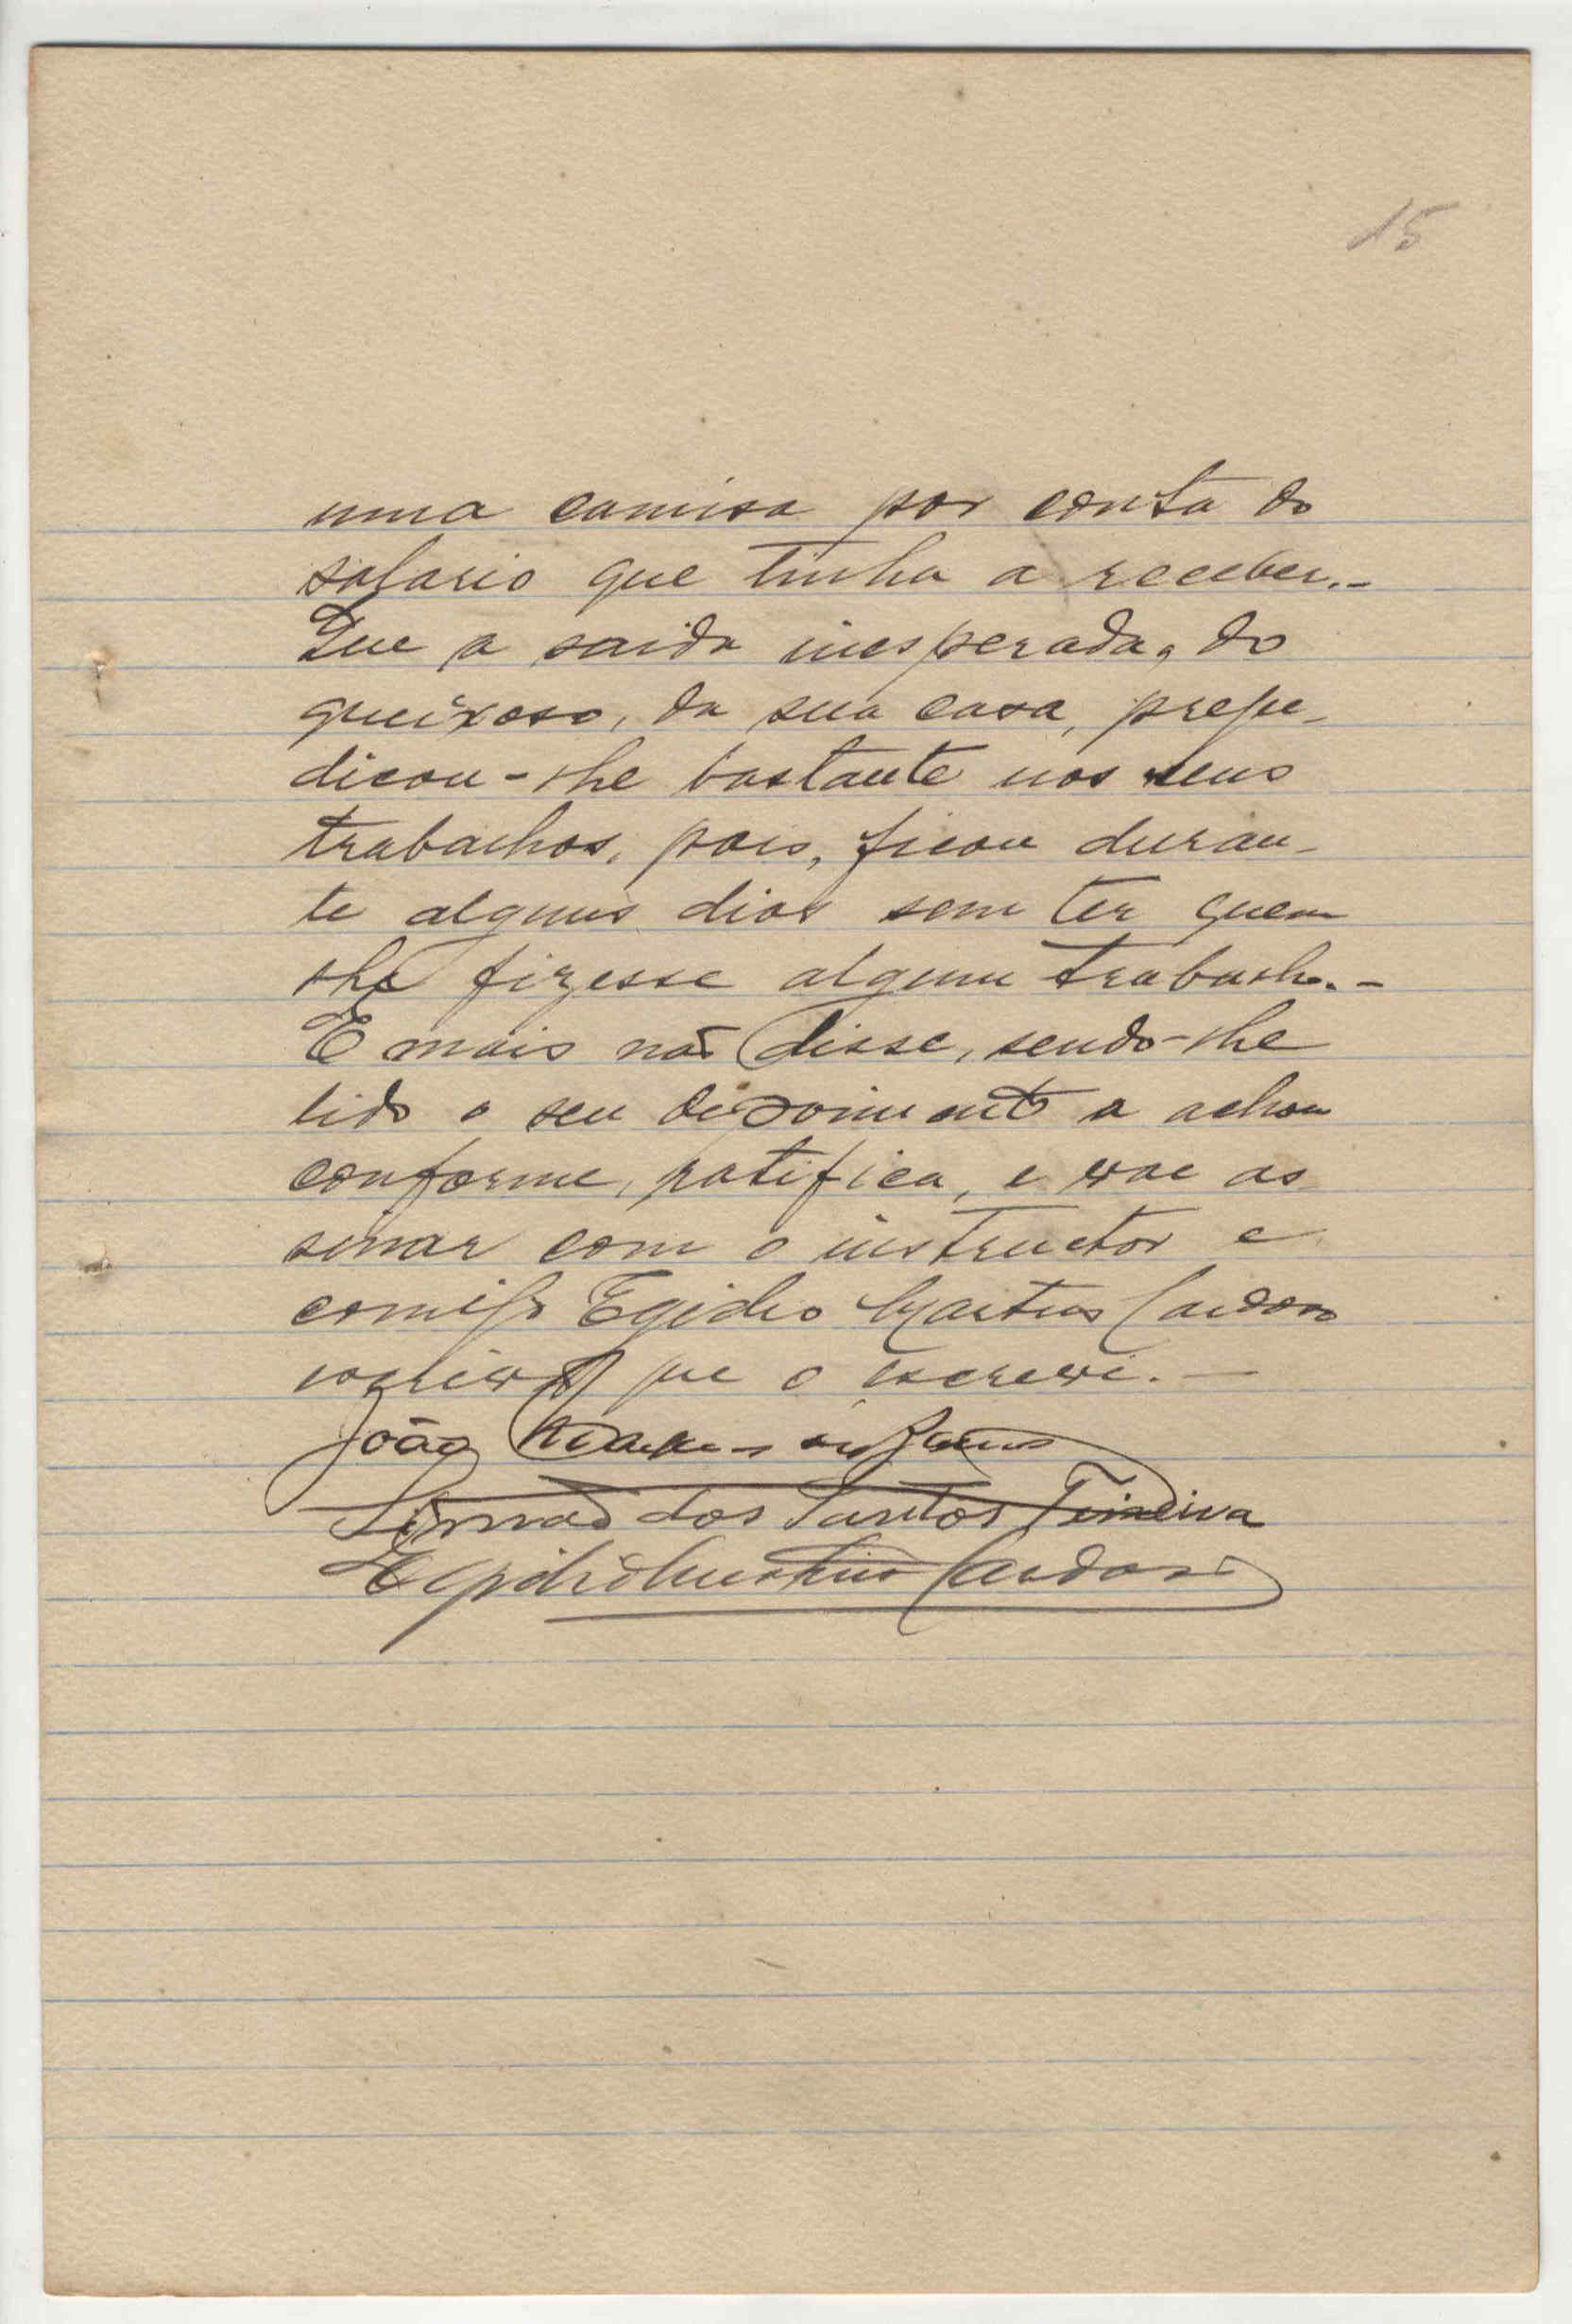 15
uma camisa por conta do
salario que tinha a receber.-
Que a saida inesperada, do
queixoso, da sua casa, preju-
dicou-lhe bastante nos seus
trabalhos, pois, ficou duran-
te alguns dias sem ter quem
lhe fizesse algum trabalho.-
E mais não disse, sendo-lhe
lido o seu depoimento o achou
conforme, ratifica, e vae as
sinar com o instructor e
comigo Egidio Martins Cardoso
escrivão que o escrevi.-
João
dos Santos Teixeira
Egidio Martins Cardoso